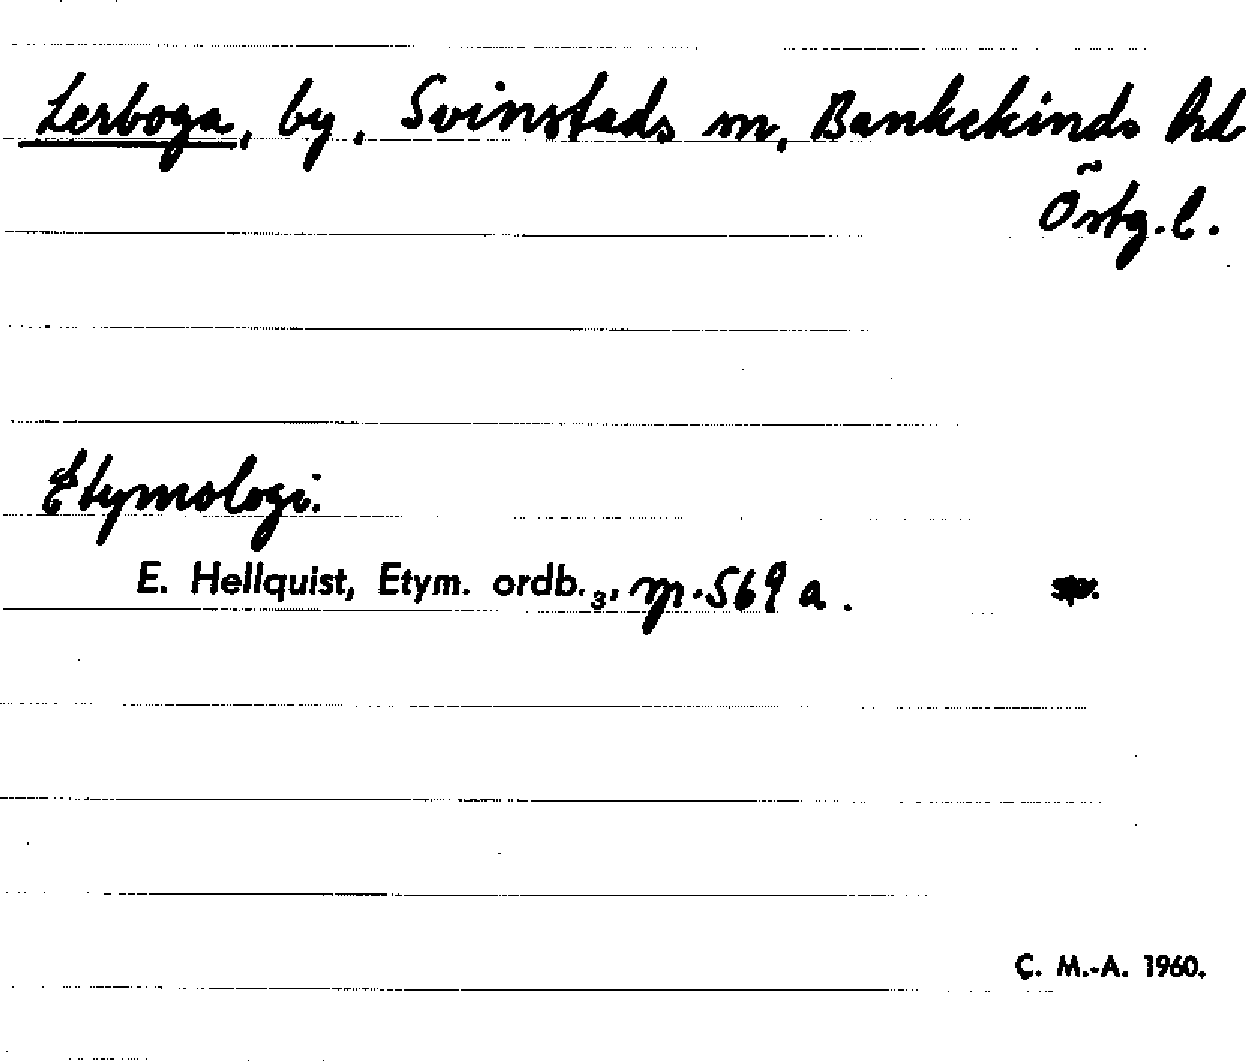 Lerboga, by, Svinstads sn, Bankekinds hd
Östg. l.
Etymologi.
E. Hellquist, Etym. ordb.₃, sp. 569 a.
C. M.-A. 1960.